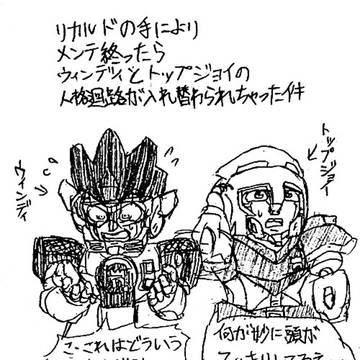 リカルドの手により
メンテ終ったら
ウィンディとトップジョイの
人格回路が入れ替わられちゃったイキ
トップジョイ
ウィンディ
こ…これはどういう
何が妙に頭が
スッキリしてるぞ…